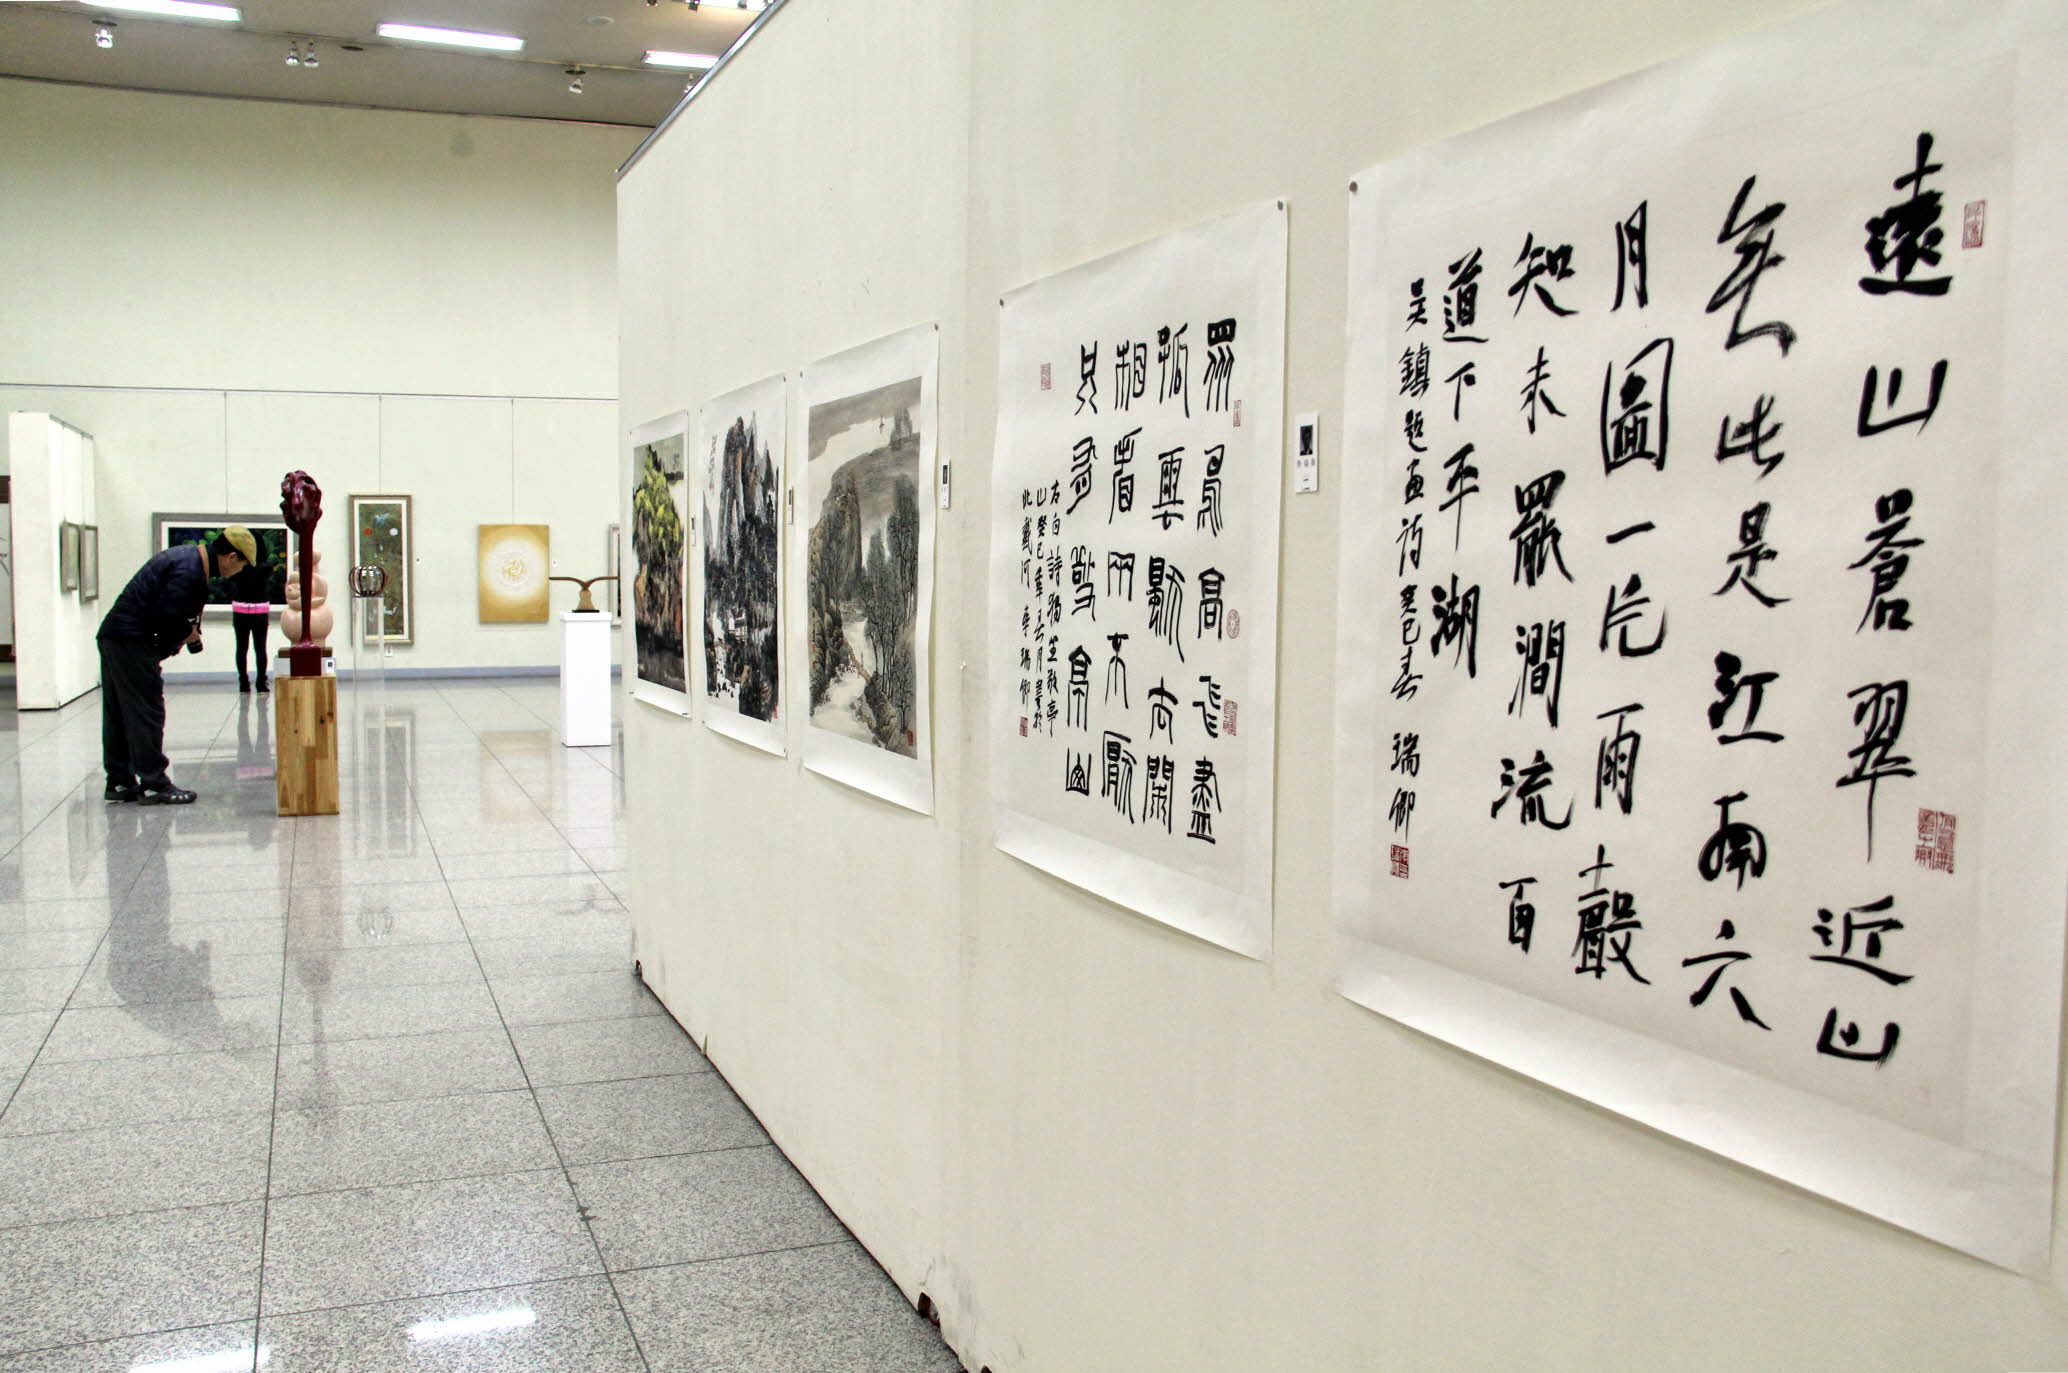 遠山蒼翠近山
無此是江南六
月圖一片雨聲
知未罷澗流百
道下平湖
吳鎮題画诗癸巳春 瑞卿
眾鳥高飛盡
孤雲獨去閑
相看兩不厭
只有敬亭山
右白詩獨坐敬亭
山癸巳年春月書於
北戴河李瑞卿